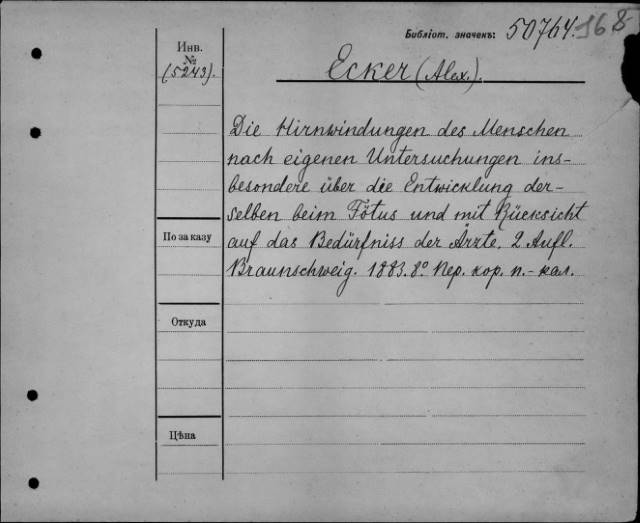 Библіот. значекъ: 50764. 168
Инв. №
(5243).
Ecker (Alex.).
Die Hirnwindungen des Menschen
nach eigenen Untersuchungen ins-
besondere über die Entwicklung der-
selben beim Fötus und mit Rücksicht
По заказу
auf das Bedürfniss der Ärzte. 2 Aufl.
Braunschweig. 1883. 8º Пер. кор. п.-кал.
Откуда
Цѣна